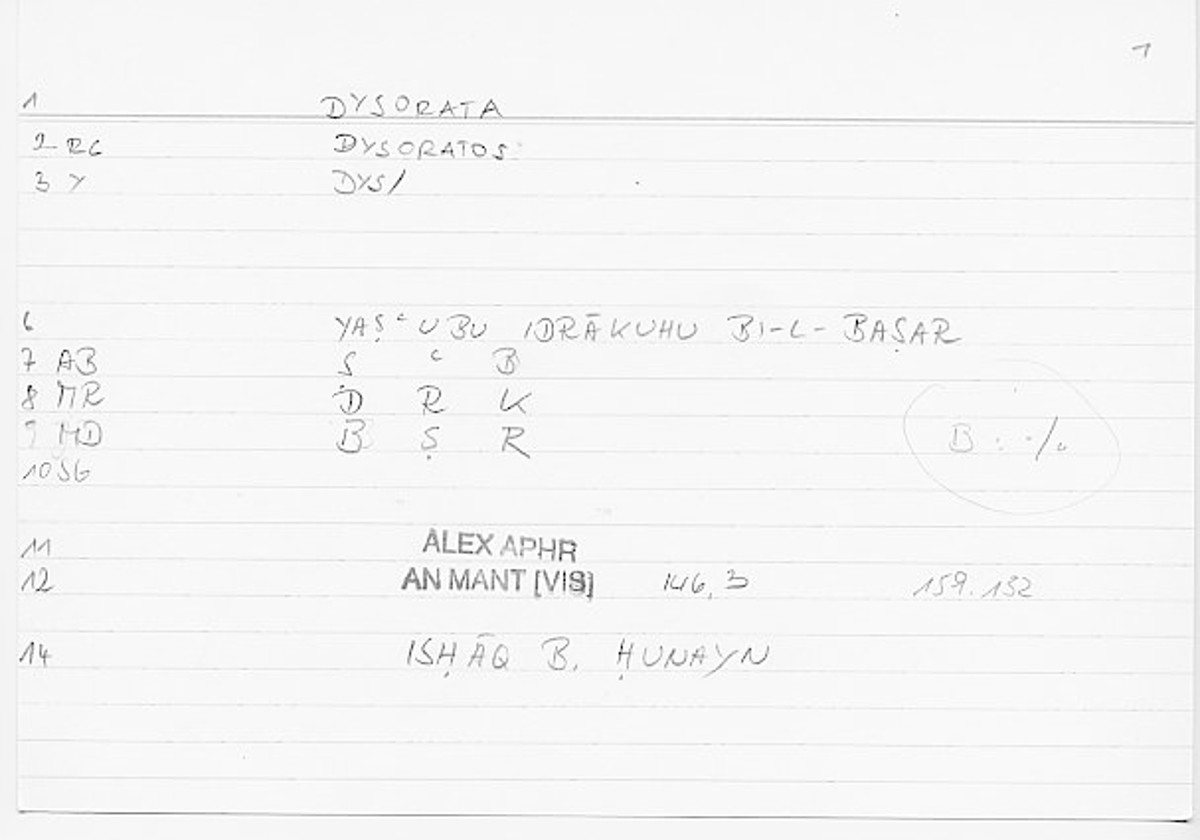 1
1 DYSORATA
2 RG DYSORATOS
3 Y DYS/
6 YAṢʿUBU IDRĀKUHU BI-L-BAṢAR
7 AB Ṣ ʿ B
8 MR D R K
9 MD B Ṣ R
B : ·/.
10 SG
11 ALEX APHR
12 AN MANT [VIS] 146,3 159.132
14 ISḤĀQ B. ḤUNAYN